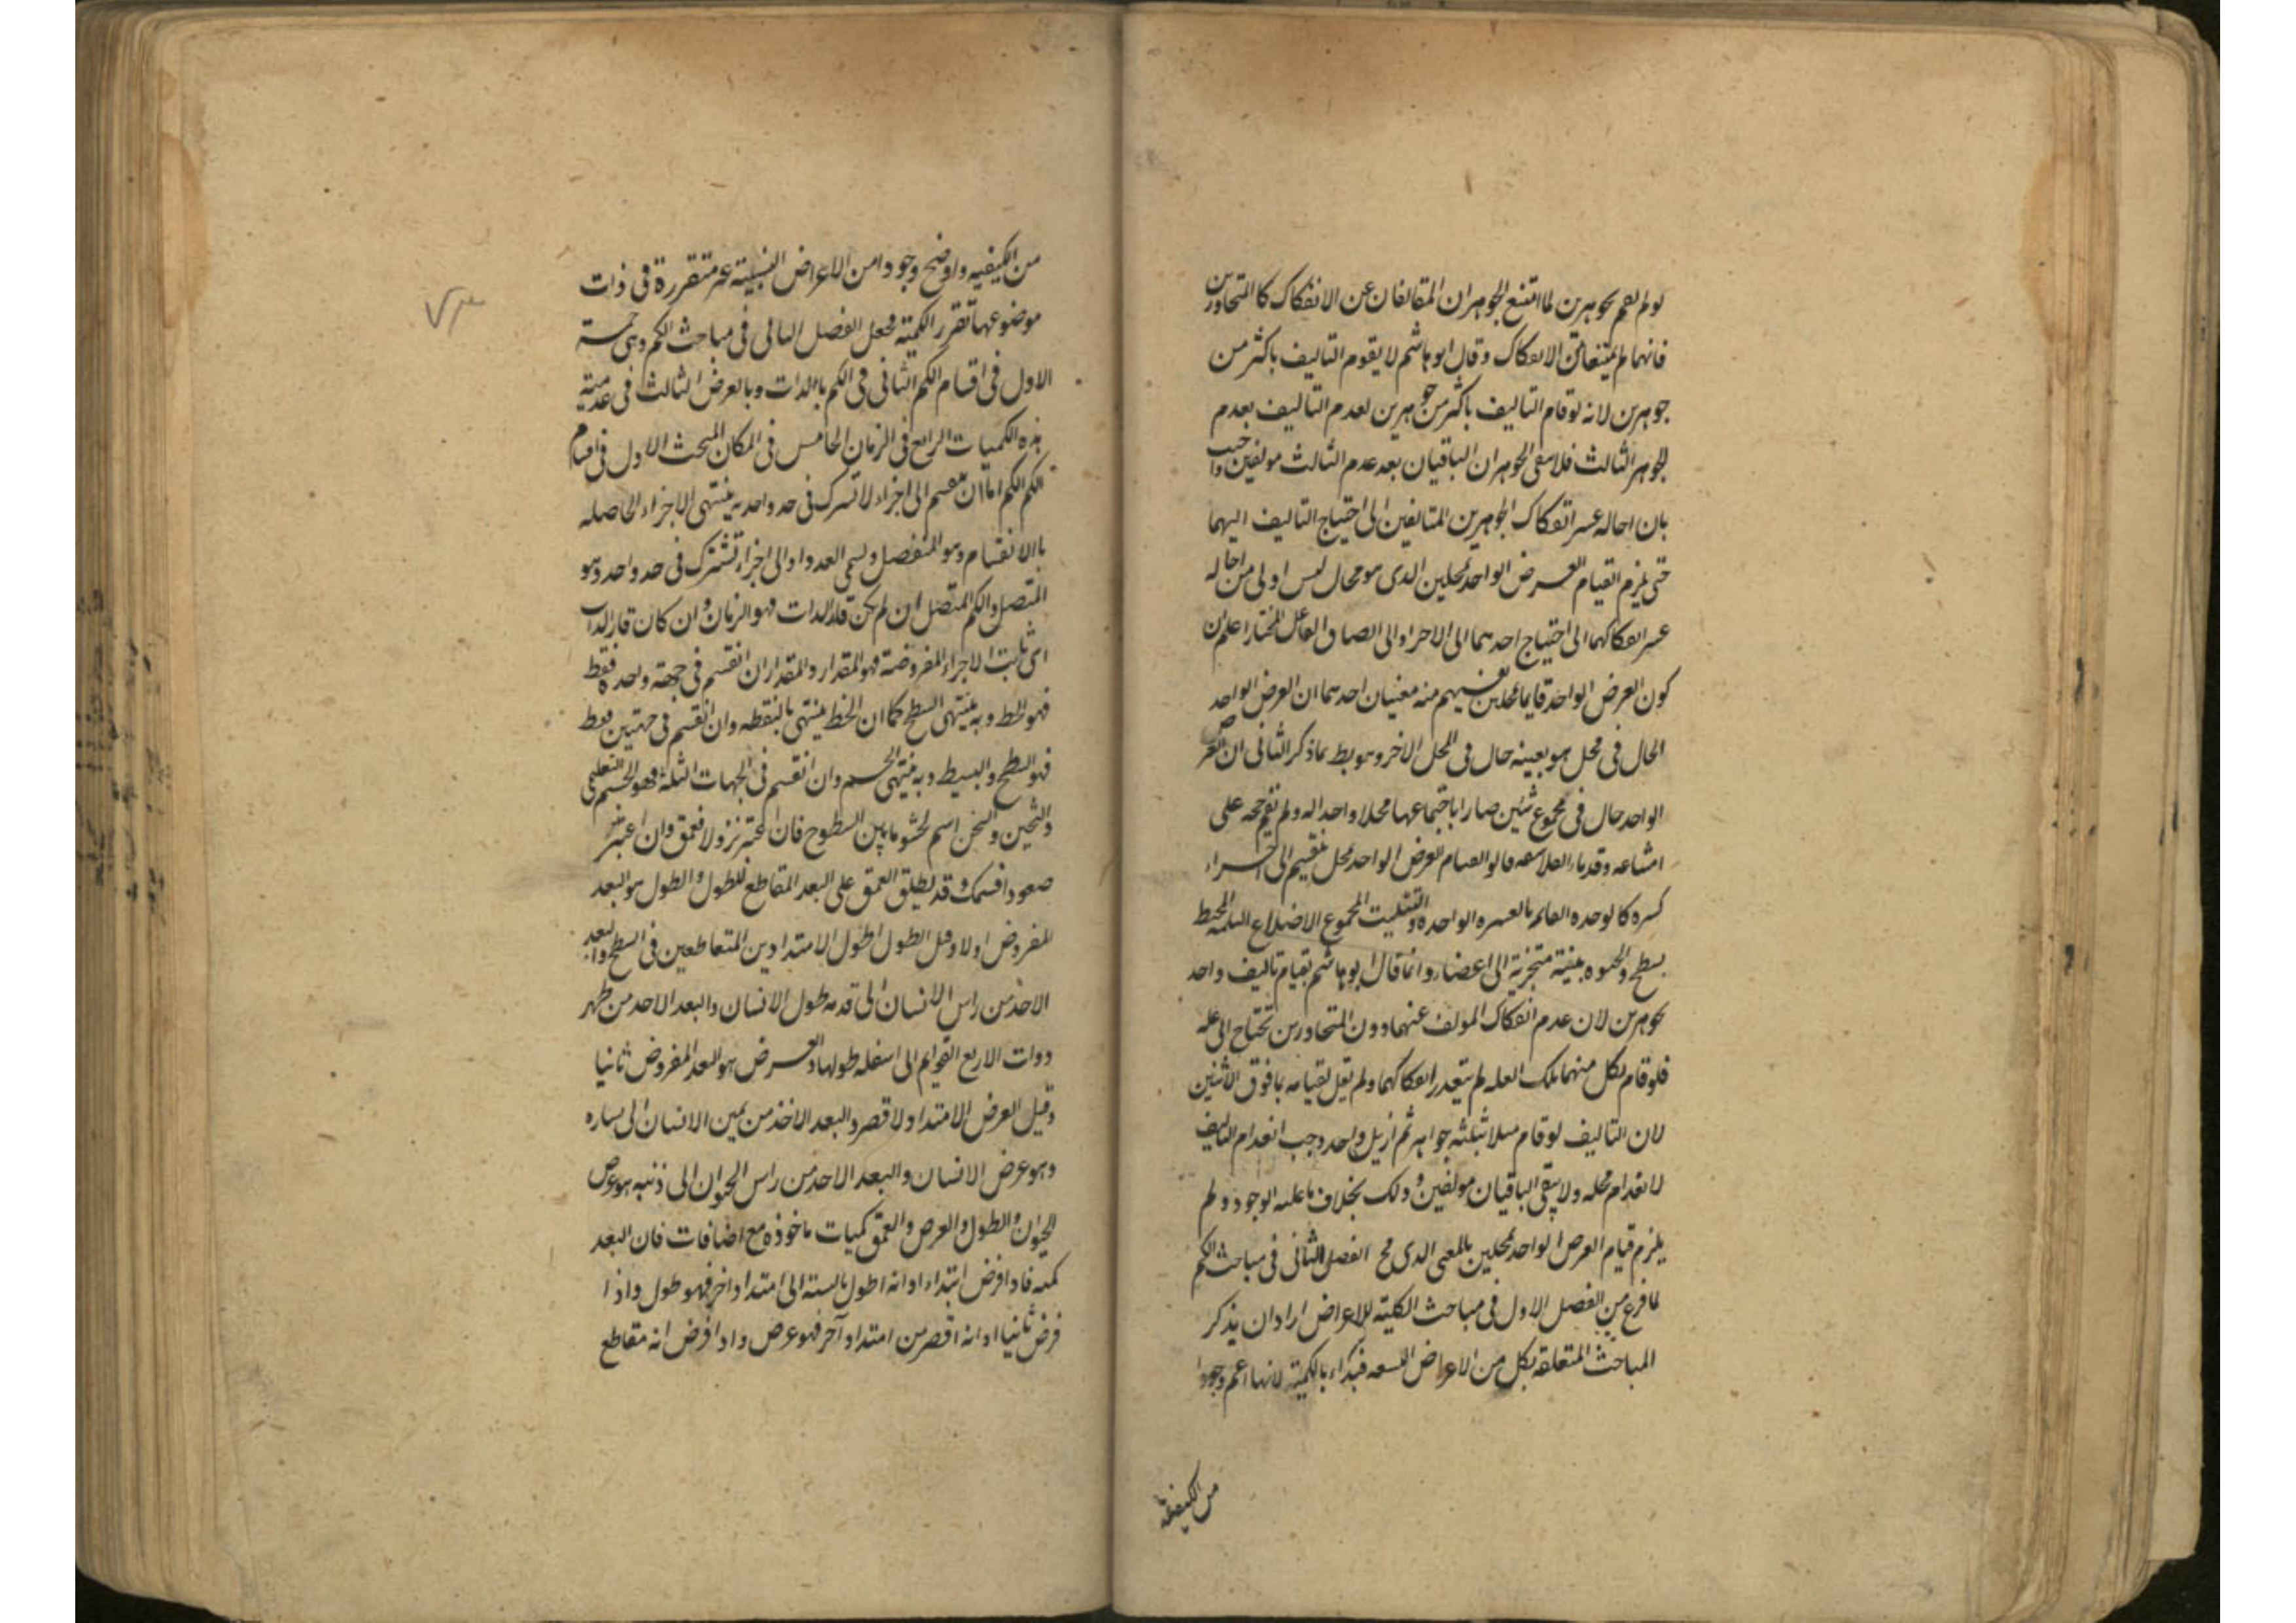 لو لم يقم بجوهرين لما امتنع الجوهران المتالفان عن الانفكاك كالمتجاورين
فانهما لم يمتنعا عن الانفكاك وقال ابو هاشم لا يقوم التاليف باكثر من
جوهرين لانه لو قام التاليف باكثر من جوهرين لعدم التاليف بعدم
الجوهر الثالث فلا يبقى الجوهران الباقيان بعد عدم الثالث مولفين واجيب
بان احاله عسر انفكاك الجوهرين المتالفين الى احتياج التاليف اليهما
حتى يلزم القيام العرض الواحد بمحلين الذى هو محال ليس اولى من احاله
عسر انفكاكهما الى احتياج احدهما الى الاخر او الى الصاق الفاعل المختار اعلم ان
كون العرض الواحد قايما بمحلين يفهم منه معنيان احدهما ان العرض الواحد
الحال فى محل هو بعينه حال فى المحل الاخر وهو بط بما ذكر الثانى ان العرض
الواحد حال فى مجموع شئين صارا باجتماعهما محلا واحدا له ولم تقم حجه على
امتناعه وقدماء الفلاسفه قالوا لقيام العرض الواحد بمحل ينقسم الى اجزاء
كثيره كالوحده القايم بالعشره الواحده والتثليث لمجموع الاضلاع الثلثه المحيط
بسطح والحيوه ببنية متجزية الى اعضاء وانما قال ابو هاشم بقيام تاليف واحد
بجوهرين لان عدم انفكاك المولف عنهما دون المتجاورين تحتاج الى عله
فلو قام بكل منهما تلك العله لم يتعذر انفكاكهما ولم يقل بقيامه بما فوق الاثنين
لان التاليف لو قام مثلا بثلثه جواهر ثم ازيل واحد وجب انعدام التاليف
لانعدام محله ولا يبقى الباقيان مولفين وذلك بخلاف ما عليه الوجود ولم
يلزم قيام العرض الواحد بمحلين بالمعنى الذى مح الفصل الثانى فى مباحث الكم
لما فرغ من الفصل الاول فى مباحث الكلية للاعراض اراد ان يذكر
المباحث المتعلقه بكل من الاعراض التسعه فبداء بالكمية لانها اعم وجودا
من الكيفية
من الكيفيه واوضح وجودا من الاعراض النسبية غير متقررة فى ذات
موضوعها تقرر الكمية فجعل الفصل الثانى فى مباحث الكم وهى خمسة
الاول فى اقسام الكم الثانى فى الكم بالذات وبالعرض الثالث فى عدمية
هذه الكميات الرابع فى الزمان الخامس فى المكان المبحث الاول فى اقسام
الكم الكم اما ان ينقسم الى اجزاء لا تشترك فى حد واحد ينتهى الاجزاء الحاصله
بالانقسام وهو المنفصل ويسمى العدد او الى اجزاء تشترك فى حد واحد وهو
المتصل والكم المتصل ان لم يكن قار الذات فهو الزمان وان كان قار الذات
اى ثابت الاجزاء المفروضة فهو المقدار والمقدار ان انقسم فى جهة واحدة فقط
فهو الخط وبه ينتهى السطح كما ان الخط ينتهى بالنقطه وان انقسم فى جهتين فقط
فهو السطح والبسيط وبه ينتهى الجسم وان انقسم فى الجهات الثلثه فهو الجسم التعليمى
والثخين والثخن اسم لحشو ما بين السطوح فان اعتبر نزولا فعمق وان اعتبر
صعودا فسمك وقد يطلق العمق على البعد المقاطع للطول والطول هو البعد
المفروض اولا وقيل الطول اطول الامتدادين المتقاطعين فى السطح والبعد
الاخذ من راس الانسان الى قدمه طول الانسان والبعد الاخذ من ظهر
ذوات الاربع القوايم الى اسفله طولها والعرض هو البعد المفروض ثانيا
وقيل العرض الامتداد لاقصر والبعد الاخذ من يمين الانسان الى يساره
وهو عرض الانسان والبعد الاخذ من راس الحيوان الى ذنبه هو عرض
الحيوان والطول والعرض والعمق كميات ماخوذه مع اضافات فان البعد
كميه فاذا فرض ابتداء او انه اطول بالنسبه الى امتداد اخر فهو طول واذا
فرض ثانيا او انه اقصر من امتداد آخر فهو عرض واذا فرض انه مقاطع